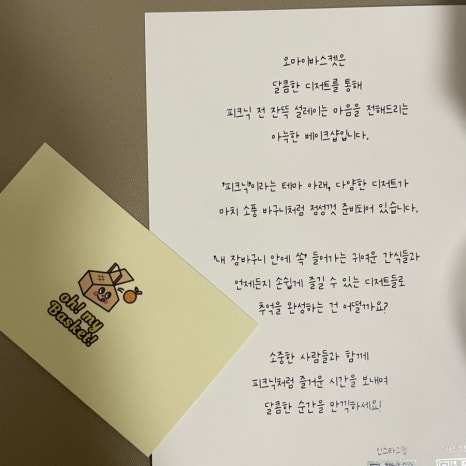 오마이바스켓은
달콤한 디저트를 통해
피크닉 전 잔뜩 설레이는 마음을 전해드리는
아늑한 베이크샵입니다.
'피크닉'이라는 테마 아래, 다양한 디저트가
마치 소풍 바구니처럼 정성껏 준비되어 있습니다.
'내 장바구니 안에 쏙' 들어가는 귀여운 간식들과
언제든지 손쉽게 즐길 수 있는 디저트들로
추억을 완성하는 건 어떨까요?
소중한 사람들과 함께
피크닉처럼 즐거운 시간을 보내며
달콤한 순간을 만끽하세요!
인스타그램
oh! my
Basket!